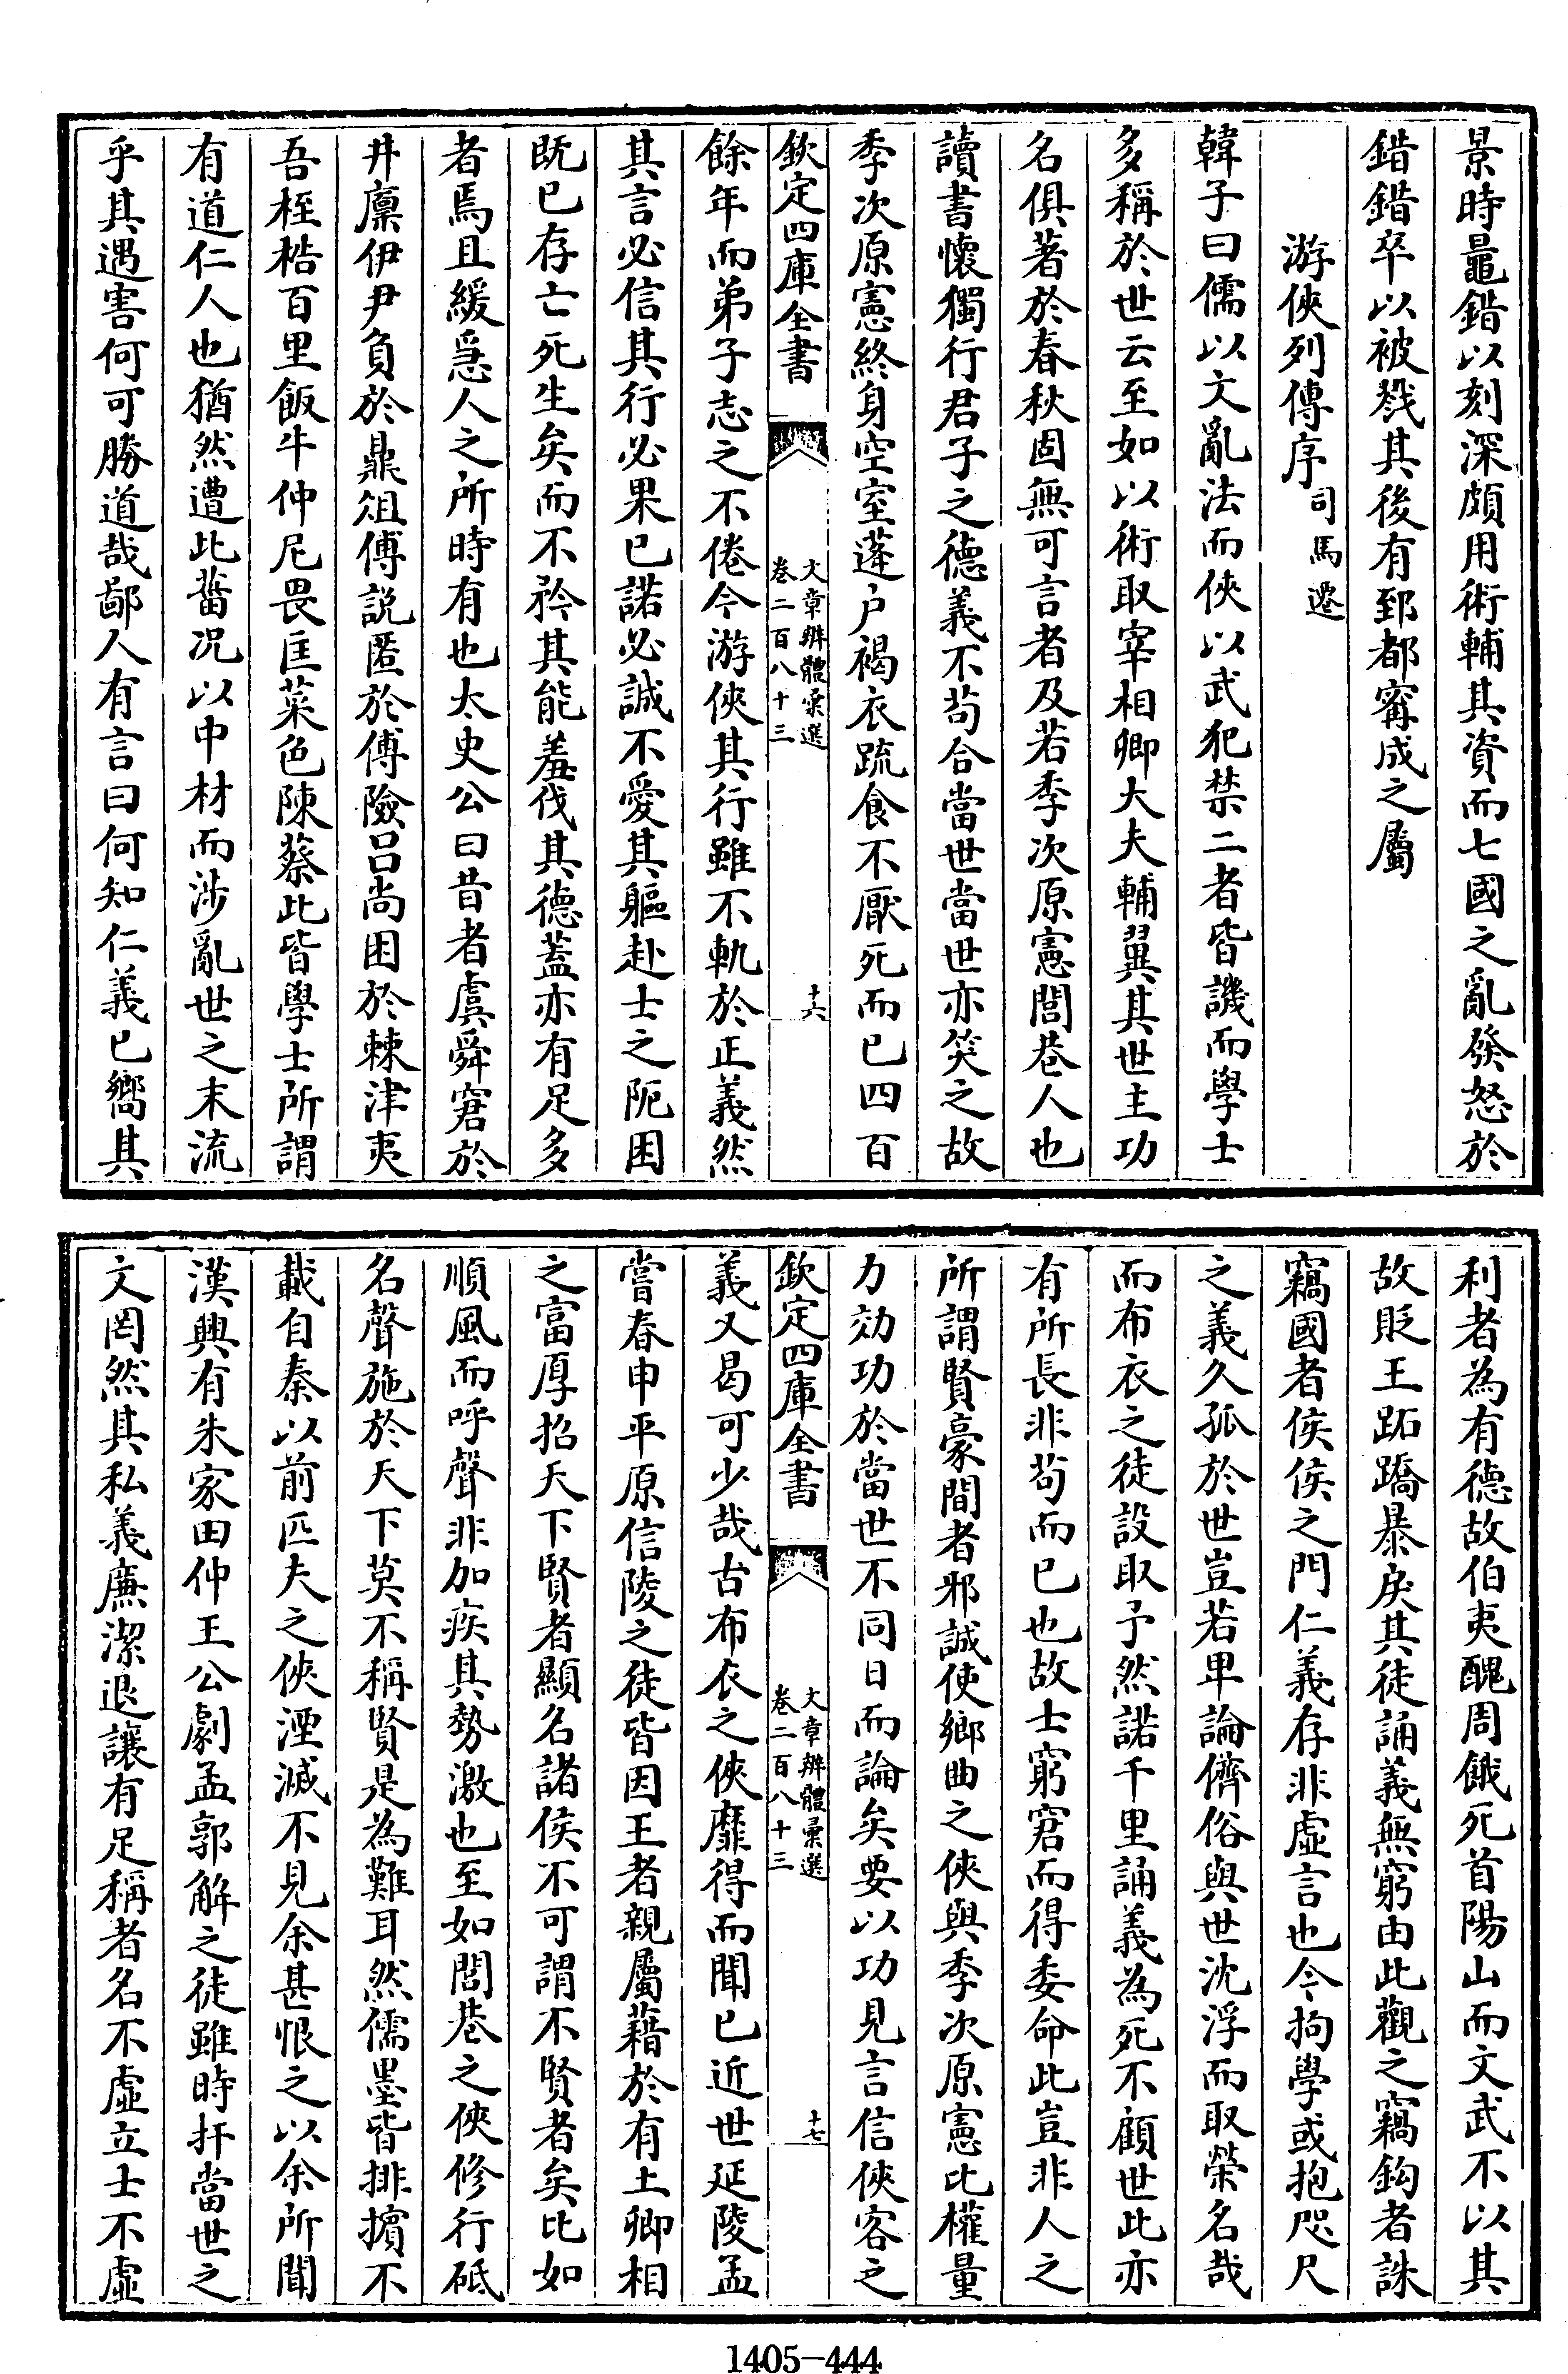 景時鼂錯以刻深頗用術輔其資而七國之亂發怒於
錯錯卒以被戮其後有郅都甯成之屬
游俠列傳序司馬遷
韓子曰儒以文亂法而俠以武犯禁二者皆譏而學士
多稱於世云至如以術取宰相卿大夫輔翼其世主功
名俱著於春秋固無可言者及若季次原憲閭巷人也
讀書懷獨行君子之德義不苟合當世當世亦笑之故
季次原憲終身空室蓬户褐衣疏食不厭死而已四百
欽定四庫全書
文章辨體彙選
卷二百八十三
十六
餘年而弟子志之不倦今游俠其行雖不軌於正義然
其言必信其行必果已諾必誠不愛其軀赴士之阨困
既已存亡死生矣而不矜其能羞伐其德蓋亦有足多
者焉且緩急人之所時有也太史公曰昔者虞舜窘於
井廩伊尹負於鼎俎傅說匿於傅險呂尚困於棘津夷
吾桎梏百里飯牛仲尼畏匡菜色陳蔡此皆學士所謂
有道仁人也猶然遭此菑况以中材而涉亂世之末流
乎其遇害何可勝道哉鄙人有言曰何知仁義已嚮其
利者為有德故伯夷醜周餓死首陽山而文武不以其
故貶王跖蹻暴戾其徒誦義無窮由此觀之竊鈎者誅
竊國者侯侯之門仁義存非虛言也今拘學或抱咫尺
之義久孤於世豈若卑論儕俗與世沈浮而取榮名哉
而布衣之徒設取予然諾千里誦義為死不顧世此亦
有所長非苟而已也故士窮窘而得委命此豈非人之
所謂賢豪間者邪誠使鄉曲之俠與季次原憲比權量
力効功於當世不同日而論矣要以功見言信俠客之
欽定四庫全書
文章辨體彙選
卷二百八十三
十七
義又曷可少哉古布衣之俠靡得而聞已近世延陵孟
嘗春申平原信陵之徒皆因王者親屬藉於有土卿相
之富厚招天下賢者顯名諸侯不可謂不賢者矣比如
順風而呼聲非加疾其勢激也至如閭巷之俠修行砥
名聲施於天下莫不稱賢是為難耳然儒墨皆排擯不
載自秦以前匹夫之俠湮滅不見余甚恨之以余所聞
漢興有朱家田仲王公劇孟郭解之徒雖時扞當世之
文罔然其私義廉潔退讓有足稱者名不虛立士不虛
1405-444